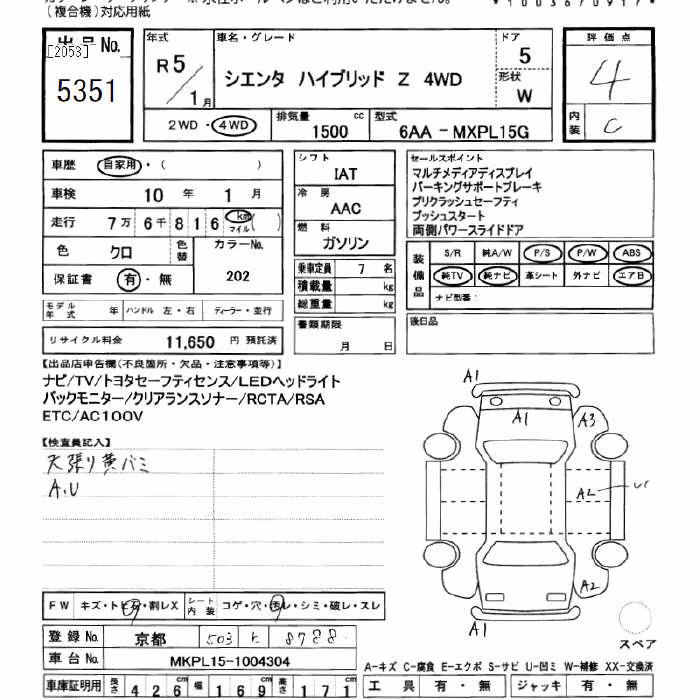 (複合機)対応用紙
出品No.
[2053]
5351
年式
R5/1月
車名・グレード
シエンタ ハイブリッド Z 4WD
ドア
5
形状
W
2WD・4WD
排気量
1500 cc
型式
6AA-MXPL15G
評価点
4
内装
C
車歴 自家用・( )
車検 10年 1月
走行 7万6千816 km マイル( )
色 クロ
色替
カラーNo. 202
保証書 有・無
モデル年式 年
ハンドル 左・右
ディーラー・並行
リサイクル料金 11,650 円 預託済
シフト
IAT
冷房
AAC
燃料
ガソリン
乗車定員 7 名
積載量 kg
総重量 kg
書類期限
月 日
セールスポイント
マルチメディアディスプレイ
パーキングサポートブレーキ
プリクラッシュセーフティ
プッシュスタート
両側パワースライドドア
装備品
S/R 純A/W P/S P/W ABS
純TV 純ナビ 革シート 外ナビ エアB
ナビ型番:
後日品
【出品店申告欄(不良箇所・欠品・注意事項等)】
ナビ/TV/トヨタセーフティセンス/LEDヘッドライト
バックモニター/クリアランスソナー/RCTA/RSA
ETC/AC100V
【検査員記入】
天張り黄バミ
A.U
A1
A1
A3
A2
A2
A1
スペア
FW キズ・トビ石・割レX
シート内装 コゲ・穴・汚レ・シミ・破レ・スレ
登録No. 京都 503 や 8788
車台No. MKPL15-1004304
A-キズ C-腐食 E-エクボ S-サビ U-凹ミ W-補修 XX-交換済
車庫証明用 長さ 426cm 幅 169cm 高さ 171
工具 有・無 ジャッキ 有・無